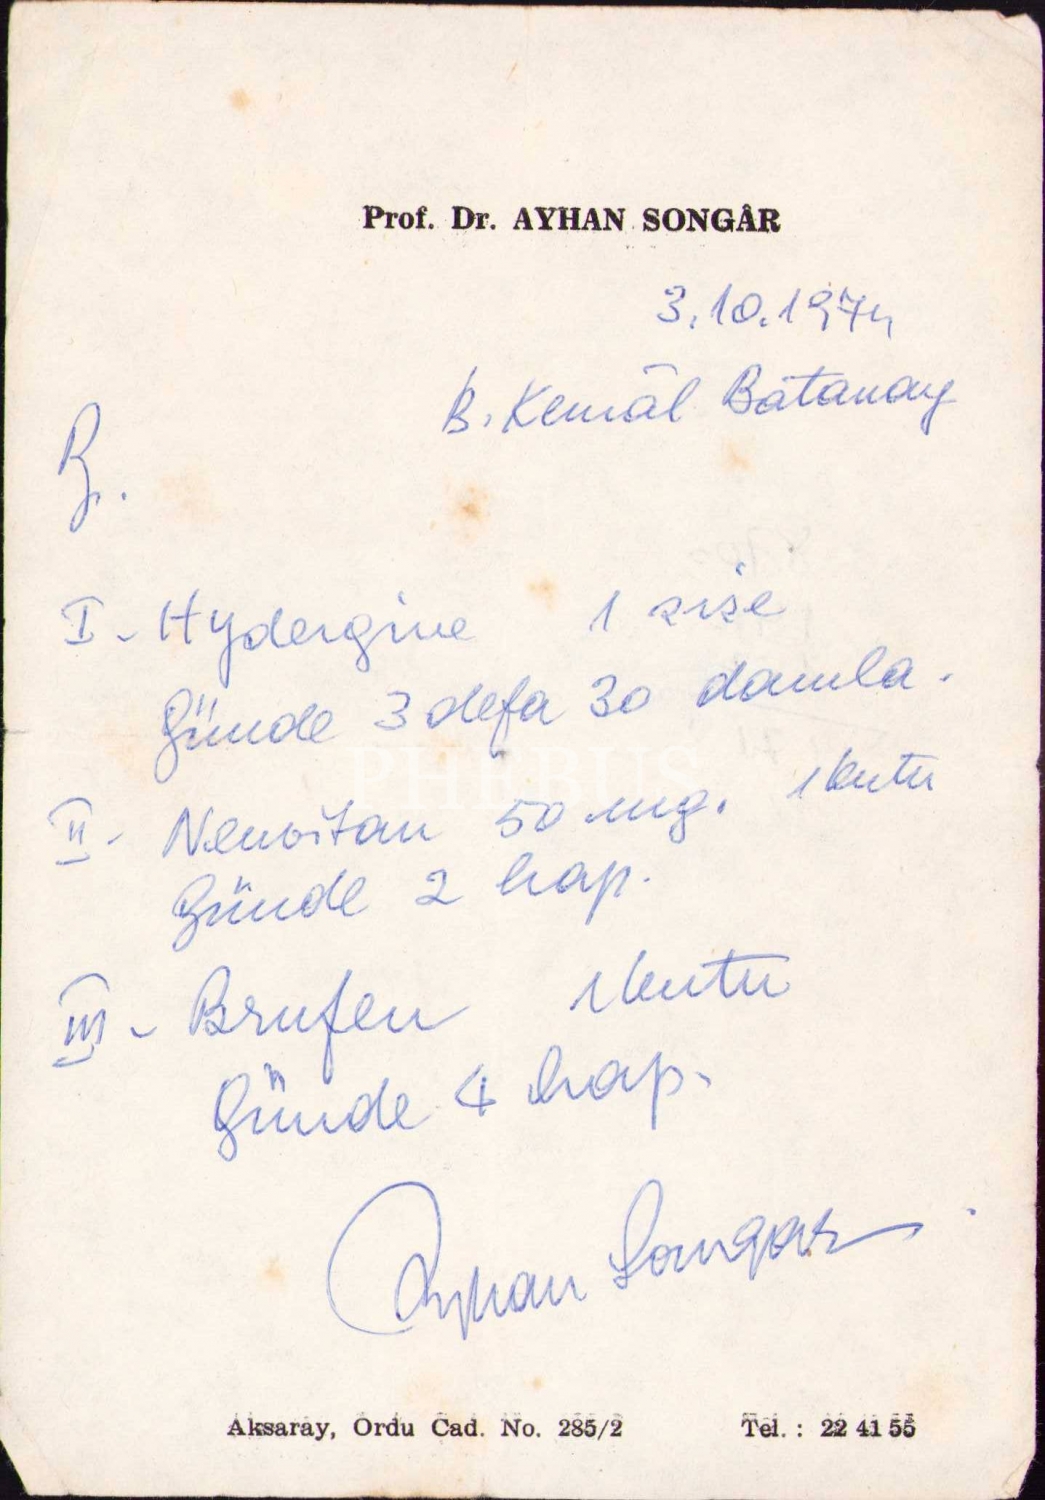 Prof. Dr. AYHAN SONGÂR
3.10.1974
B. Kemâl Batanay
R.
I - Hydergine 1 şişe
Günde 3 defa 30 damla.
II - Nevvitan 50 mg. 1 kutu
Günde 2 hap.
III - Brufen 1 kutu
Günde 4 hap.
Ayhan Songar
Aksaray, Ordu Cad. No. 285/2 Tel. : 22 41 55
PHEBUS